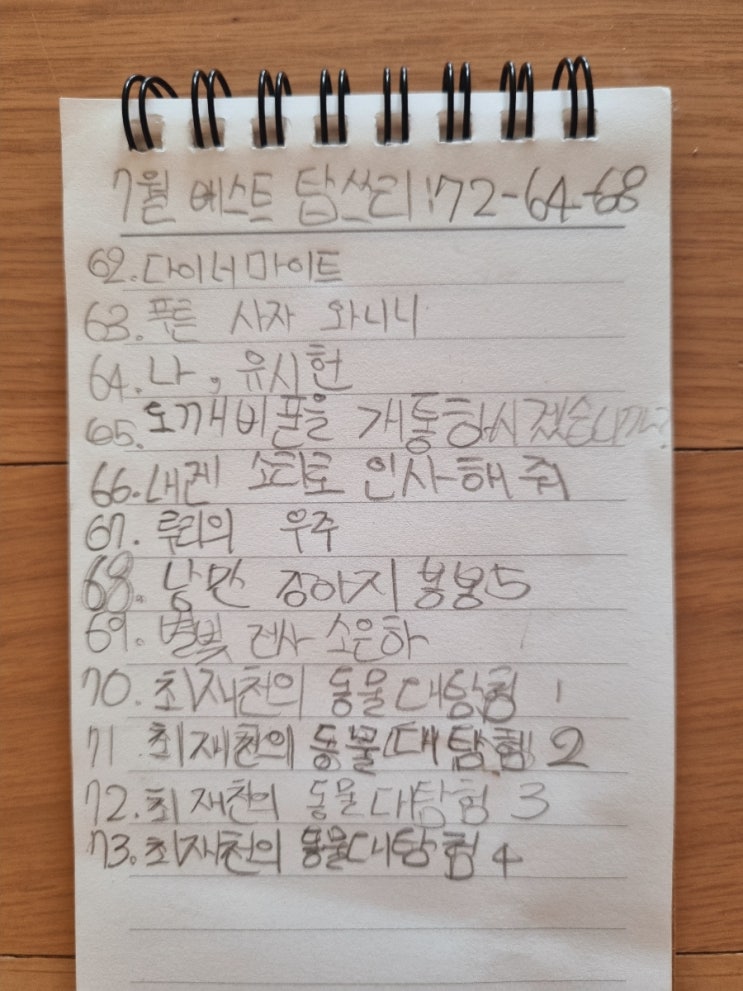 7월 베스트 탑쓰리:72-64-68
62.다이너마이트
63.푸른 사자 와니니
64.나, 유시헌
65.도깨비폰을 개통하시겠습니까?
66.내겐 소리로 인사해 줘
67.루리의 우주
68.낭만 강아지 봉봉5
69.별빛 전사 소은하
70.최재천의 동물대탐험 1
71 최재천의 동물대탐험 2
72.최재천의 동물대탐험 3
73.최재천의 동물대탐험 4